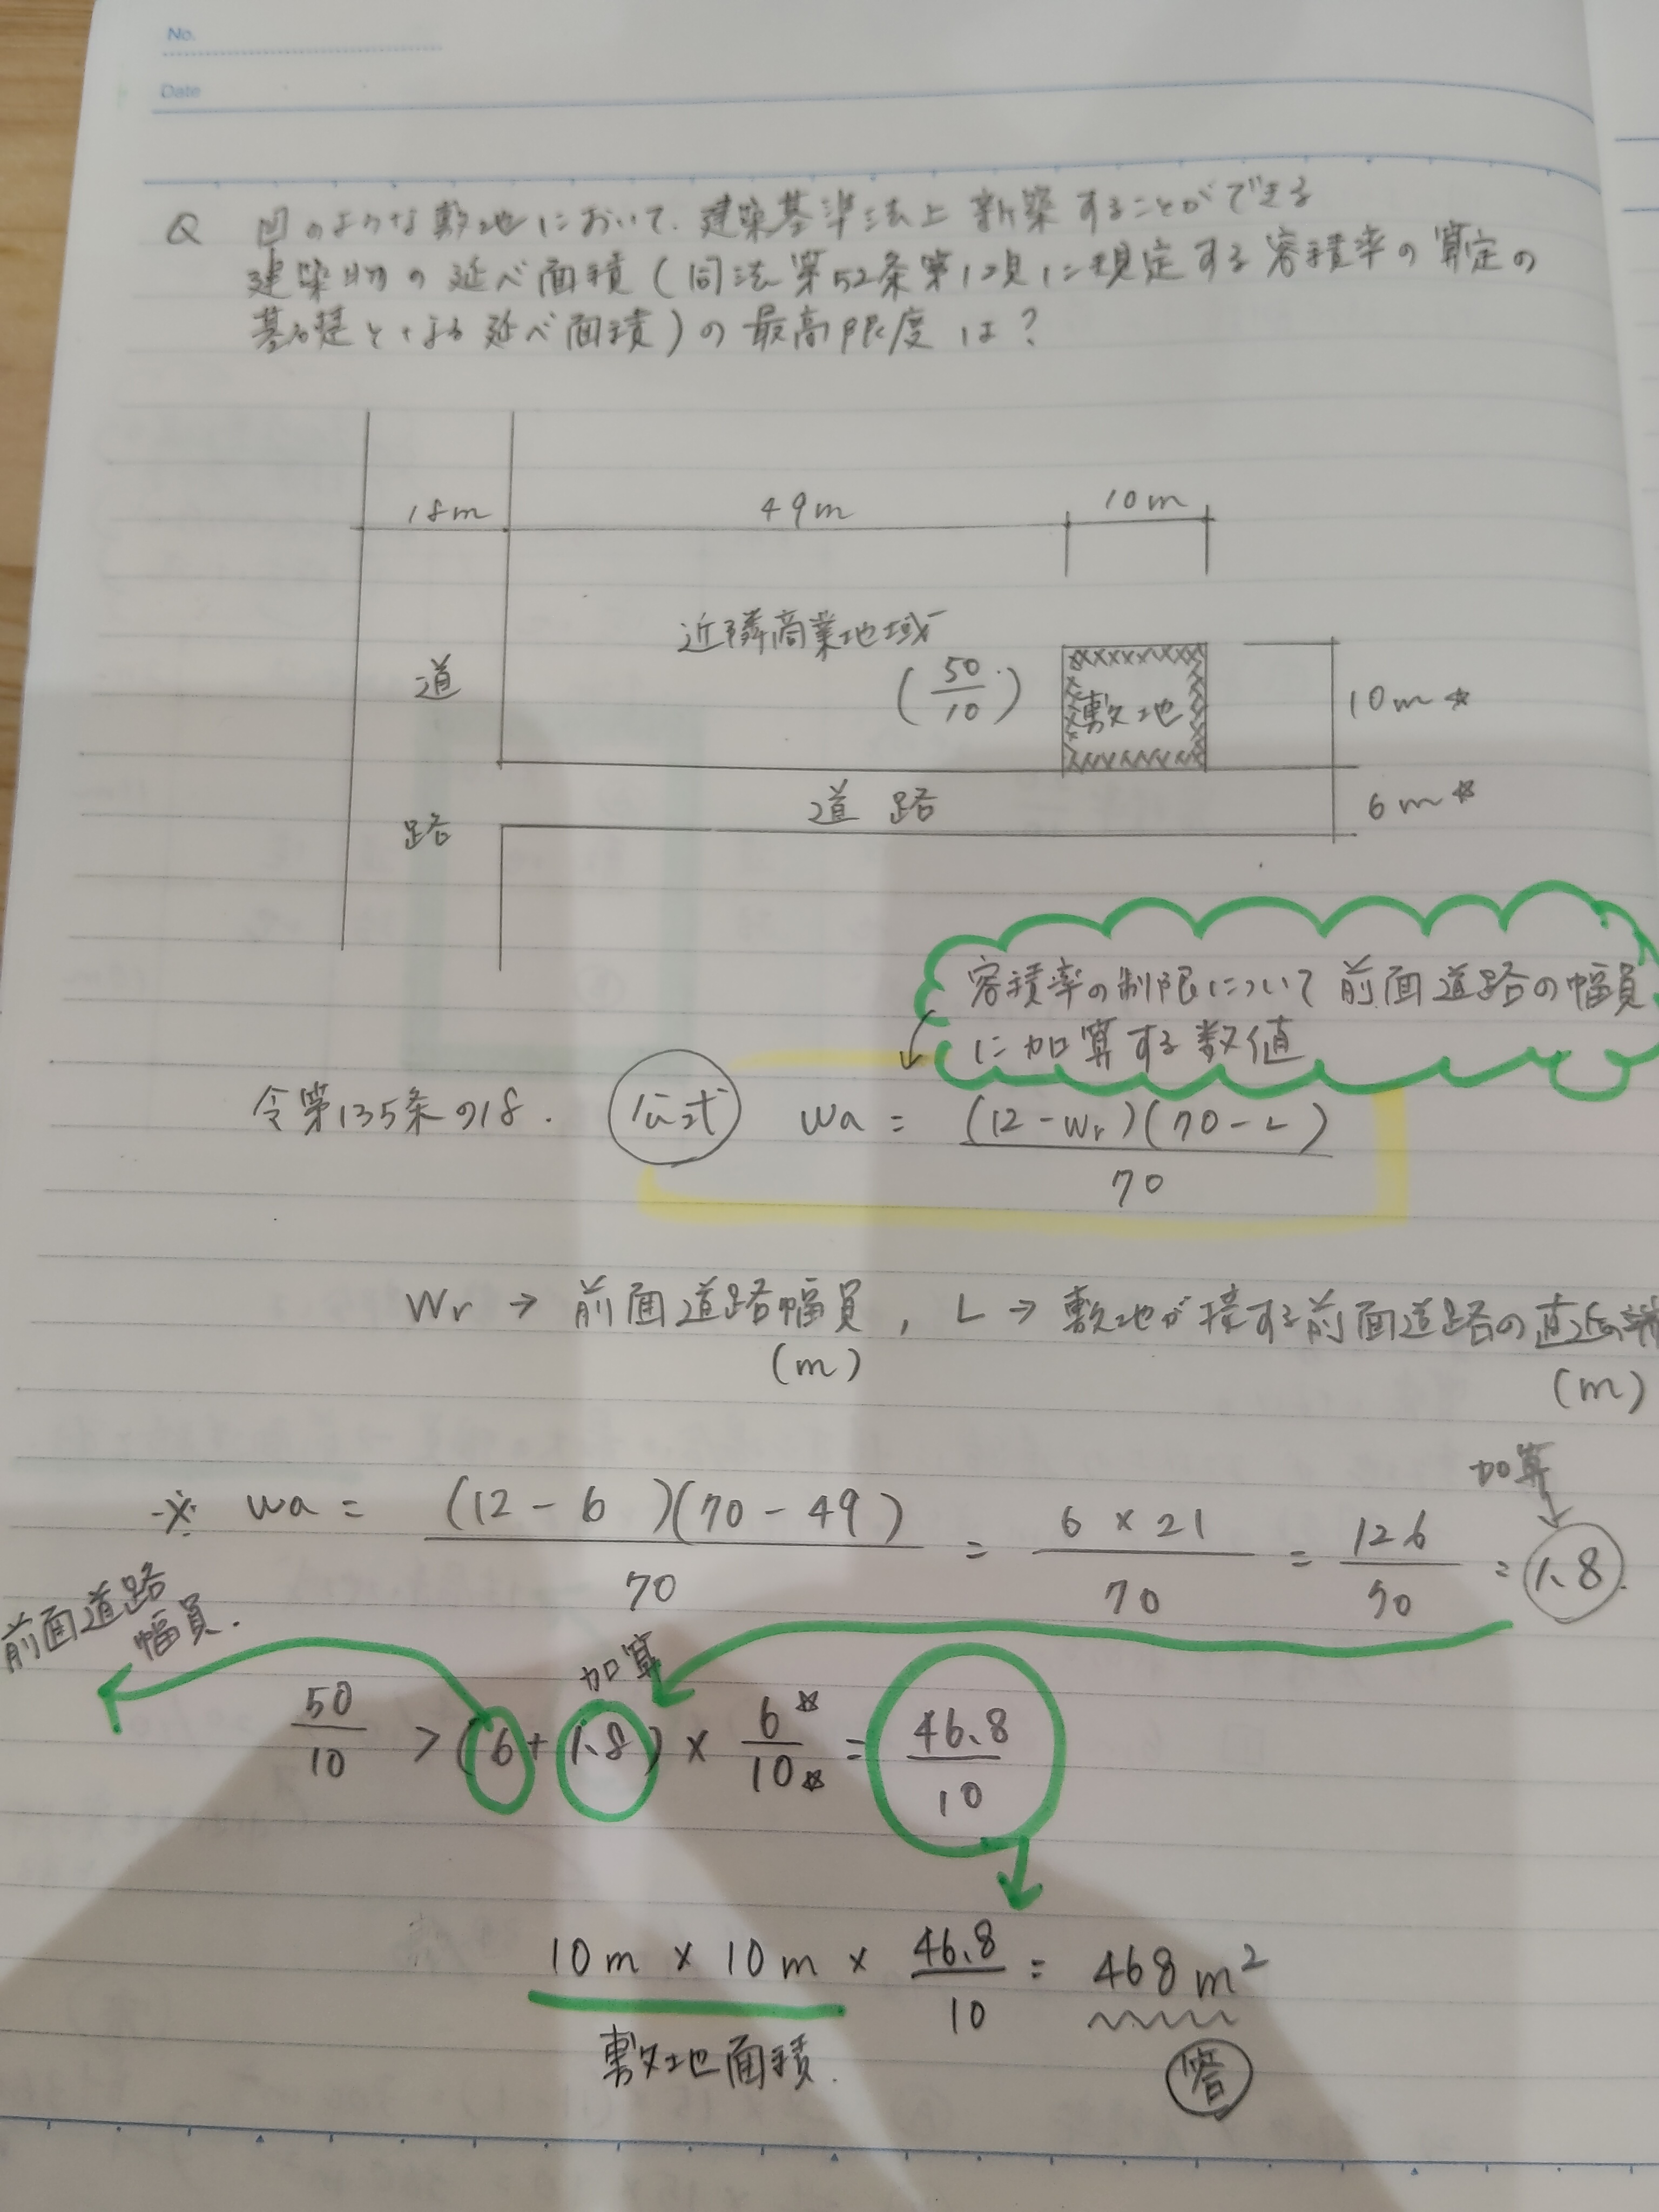 No.
Date
Q 図のような敷地において、建築基準法上 新築することができる
建築物の延べ面積(同法第52条第1項に規定する容積率の算定の
基礎となる延べ面積)の最高限度は?
18m 49m 10m
近隣商業地域
(50/10)
敷地
道
路
道路
10m☆
6m☆
容積率の制限について前面道路の幅員
に加算する数値
令第135条の18. 公式 Wa = (12-Wr)(70-L)/70
Wr → 前面道路幅員, L → 敷地が接する前面道路の直近の端
(m) (m)
加算
※ Wa = (12-6)(70-49)/70 = 6×21/70 = 126/70 = 1.8.
前面道路
幅員.
加算
50/10 > (6+1.8) × 6☆/10☆ = 46.8/10
10m × 10m × 46.8/10 = 468m²
敷地面積.
答